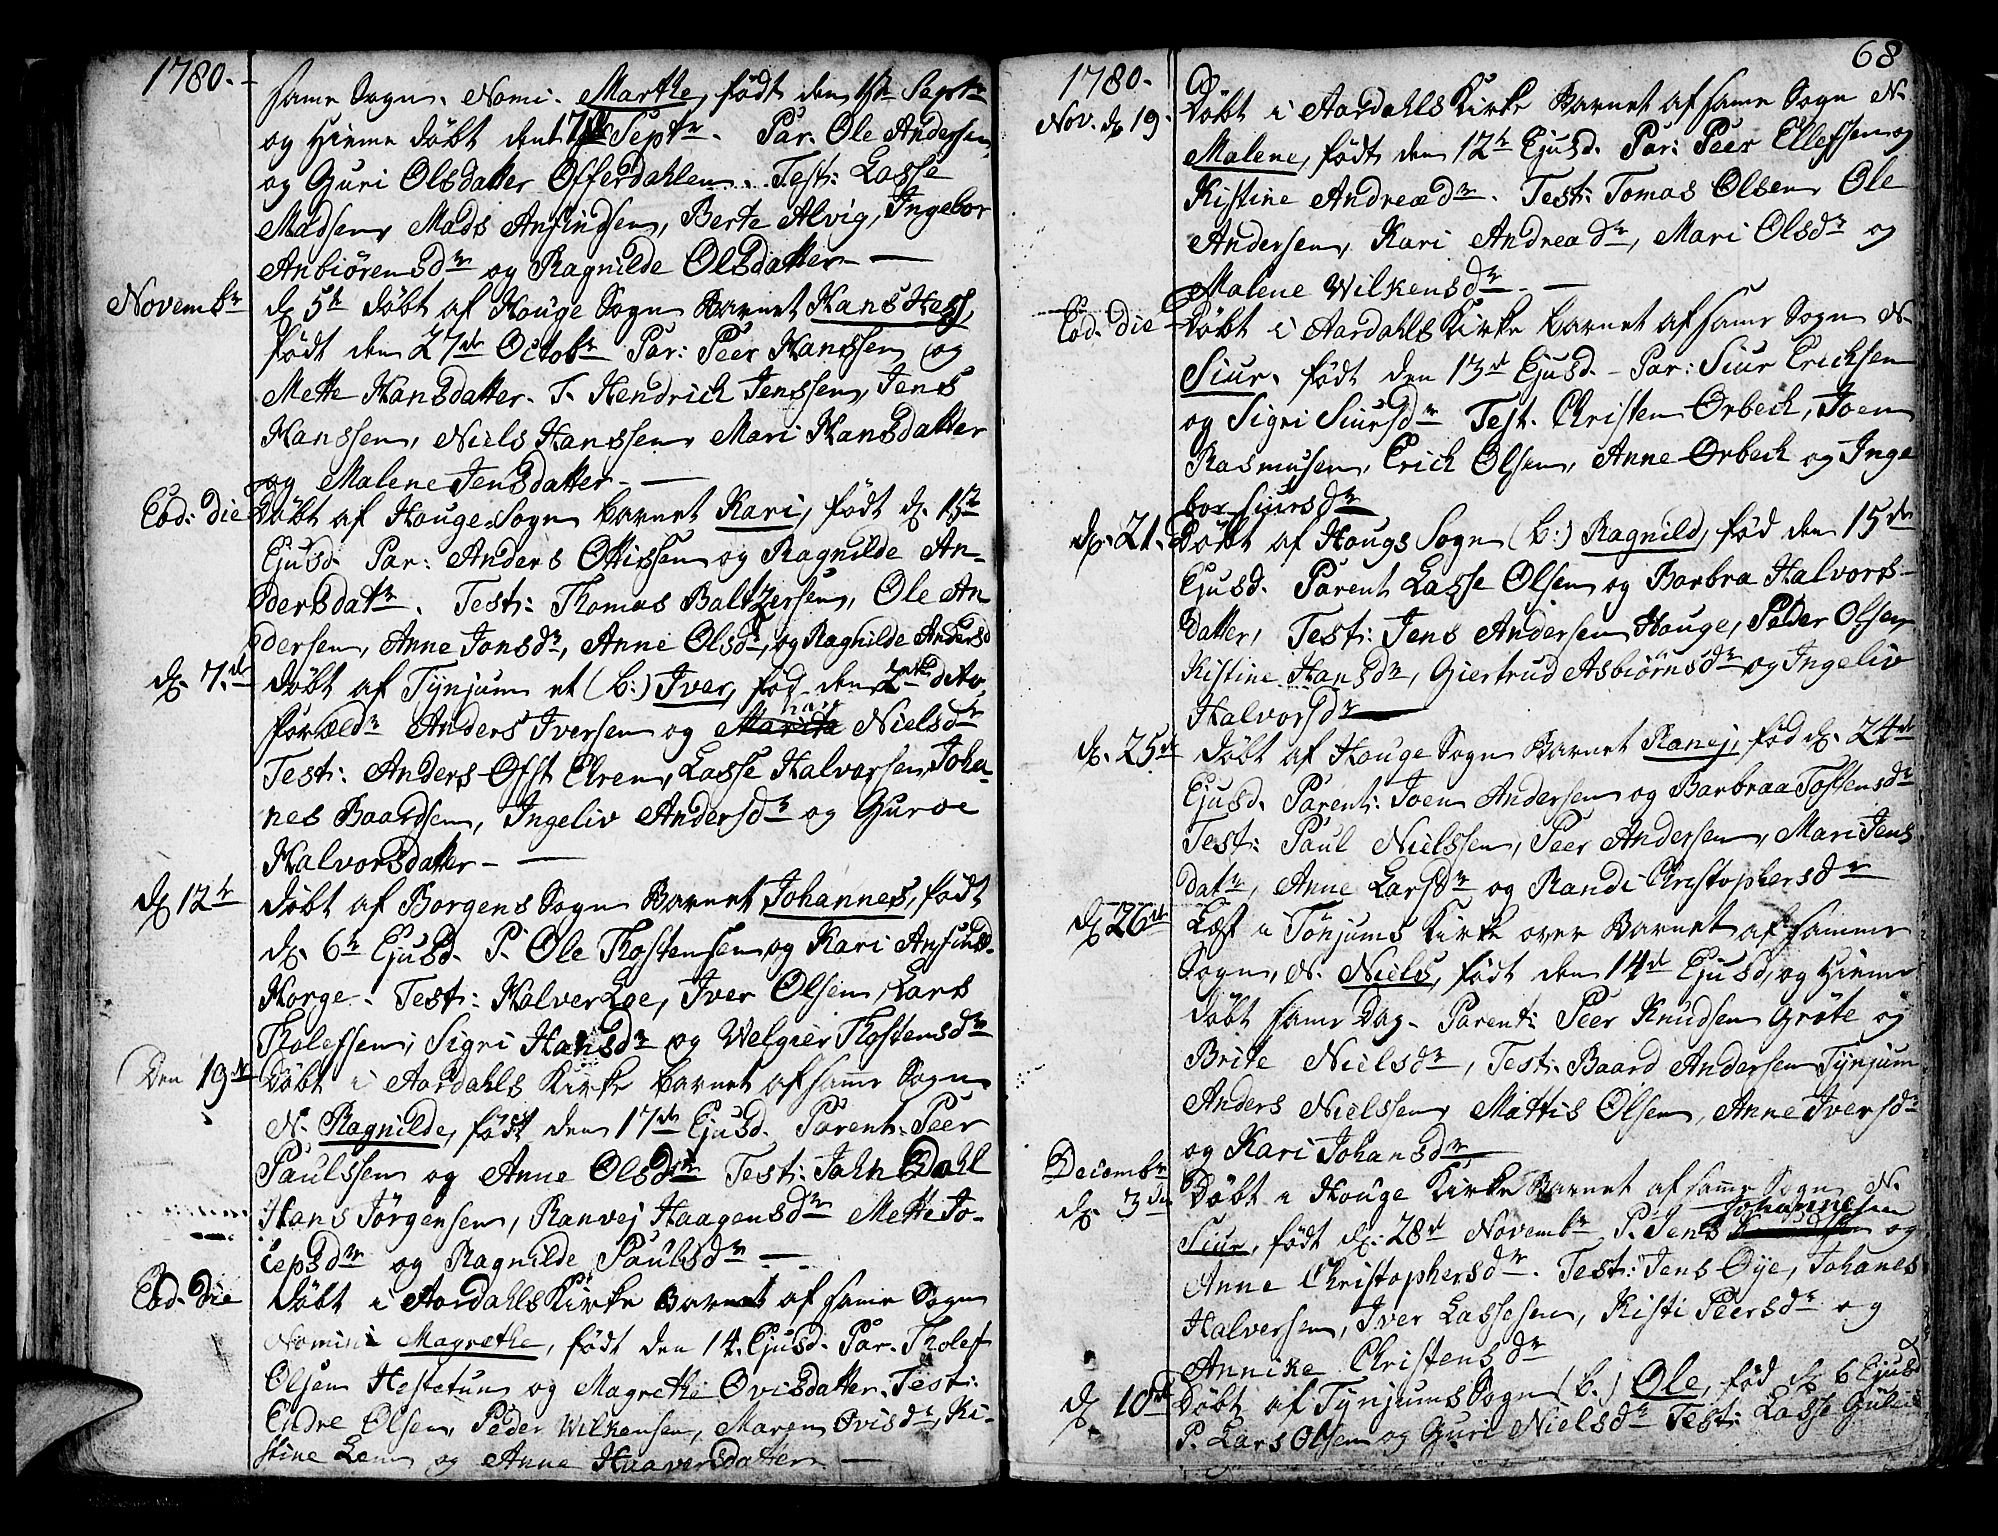 1780.
same Sogn. Nomi. Marthe, født den Septr
og hieme døbt den 17de Septr. Par: Ole Andersen
og Guri Olsdatter Offerdahlen. Test: Lasse
Madsen, Mads Anfindsen, Berte Alvig, Ingebor
Anbiørensdr og Ragnilde Olsdatter
Novembr d. 5te døbt af Houge Sogn Barnet Hans Hess,
født den 27de Octobr Par: Peer Hanssen og
Mette Hansdatter. T. Hendrich Jenssen, Jens
Hanssen, Niels Hanssen, Mari Hansdatter
og Malene Jensdatter.
Eod: die Døbt af Houge Sogn barnet Kari, født d. 1ste
Ejusd. Par: Anders Ottissen og Ragnilde An-
dersdatr. Test: Thomas Baltzersen, Ole An
dersen, Anne Jonsdr, Anne Olsdr, og Ragnilde Andersd
d. 7de døbt af Tynjum et (b:) Iver, fød den 2den do Av.
foræld Anders Iversen og Nielsdr
Test: Anders Offst Elren, Lasse Halvorsen, Joha-
nes Baardsen, Ingeliv Andersdr og Gurve
Halvorsdatter
d. 12te døbt af Borgens Sogn Barnet Johannes, født
d. 6te Ejusd. P. Ole Thostensen og Kari Anfinds.
Horge. Test: Halver Loe, Iver Olsen, Lars
Tholefsen, Sigri Hansdr og Welgier Thostensdr
Den 19de Døbt i Aardahls Kirke barnet af same Sogn
N. Ragnilde, født den 17de Ejusd. Parent: Peer
Paulssen og Anne Olsdr Test: John Dahl
Hans Jørgensen, Ranvej Haagensdr Mette Jo-
cepsdr og Ragnilde Paulsdr
Eod. die Døbt i Aardahls Kirke Barnet af same Sogn
Nomini Magrethe, født den 14. Ejusd. Par. Tholef
Olsen Hestetun og Magrethe Ovisdatter. Test:
Endre Olsen, Peder Wilkensen, Maren Ovisdr, Ki-
stine Lem og Anne Haaversdatter
68
1780.
Nov. d. 19. Døbt i Aardahls Kirke Barnet af same Sogn N.
Malene, født den 12te Ejusd. Par: Peer Ellefsen og
Kistine Andreædr. Test: Tomas Olsen, Ole
Andersen, Kari Andreadr, Mari Olsdr og
Malene Wilkensdr.
Eod. die Døbt i Aardahls Kirke barnet af same Sogn N.
Siur, født den 13de Ejusd. Par: Siur Erichsen
og Sigri Siursdr Test. Christen Ørbech, Joen
Rasmusen, Erich Olsen, Anne Ørbech og Inge
bor Siursdr
d. 21. Døbt af Hougs Sogn (b:) Ragnild, fød den 15de
Ejusd. Parent Lasse Olsen og Barbra Halvors-
datter, Test: Jens Andersen Houge, Peder Olsen,
Kistine Hansdr, Giertrud Asbiørnsdr og Ingeliv
Halvorsdr
d. 25de døbt af Houge Sogn Barnet Ranej, fød d. 24de
Ejusd. Parent: Joen Andersen og Barbraa Tostensdr
Test: Paul Nielssen, Peer Andersen, Mari Jens
datr, Anne Larsdr og Randi Christophersdr
d. 26de Læst i Tønjums Kirke over Barnet af samme
Sogn, N. Niels, født den 14de Ejusd, og hieme
døbt same Dag. Parent: Peer Knudsen Grøte og
Brite Nielsdr, Test: Baard Andersen Tynjum
Anders Nielssen, Mattis Olsen, Anne Iversdr
og Kari Johansdr
Decembr
d. 3die Døbt i Houge Kirke Barnet af same Sogn N.
Siur, født d. 28de Novembr P. Jens Johannesen og
Anne Christophersdr. Test: Jens Øye, Johanes
Halversen, Iver Lassesen, Kisti Peersdr og
Annike Christensdr
d. 10de Døbt af Tynjums Sogn (b:) Ole, fød d. 6 Ejusd
P. Lars Olsen og Guri Nielsdr Test: Lasse